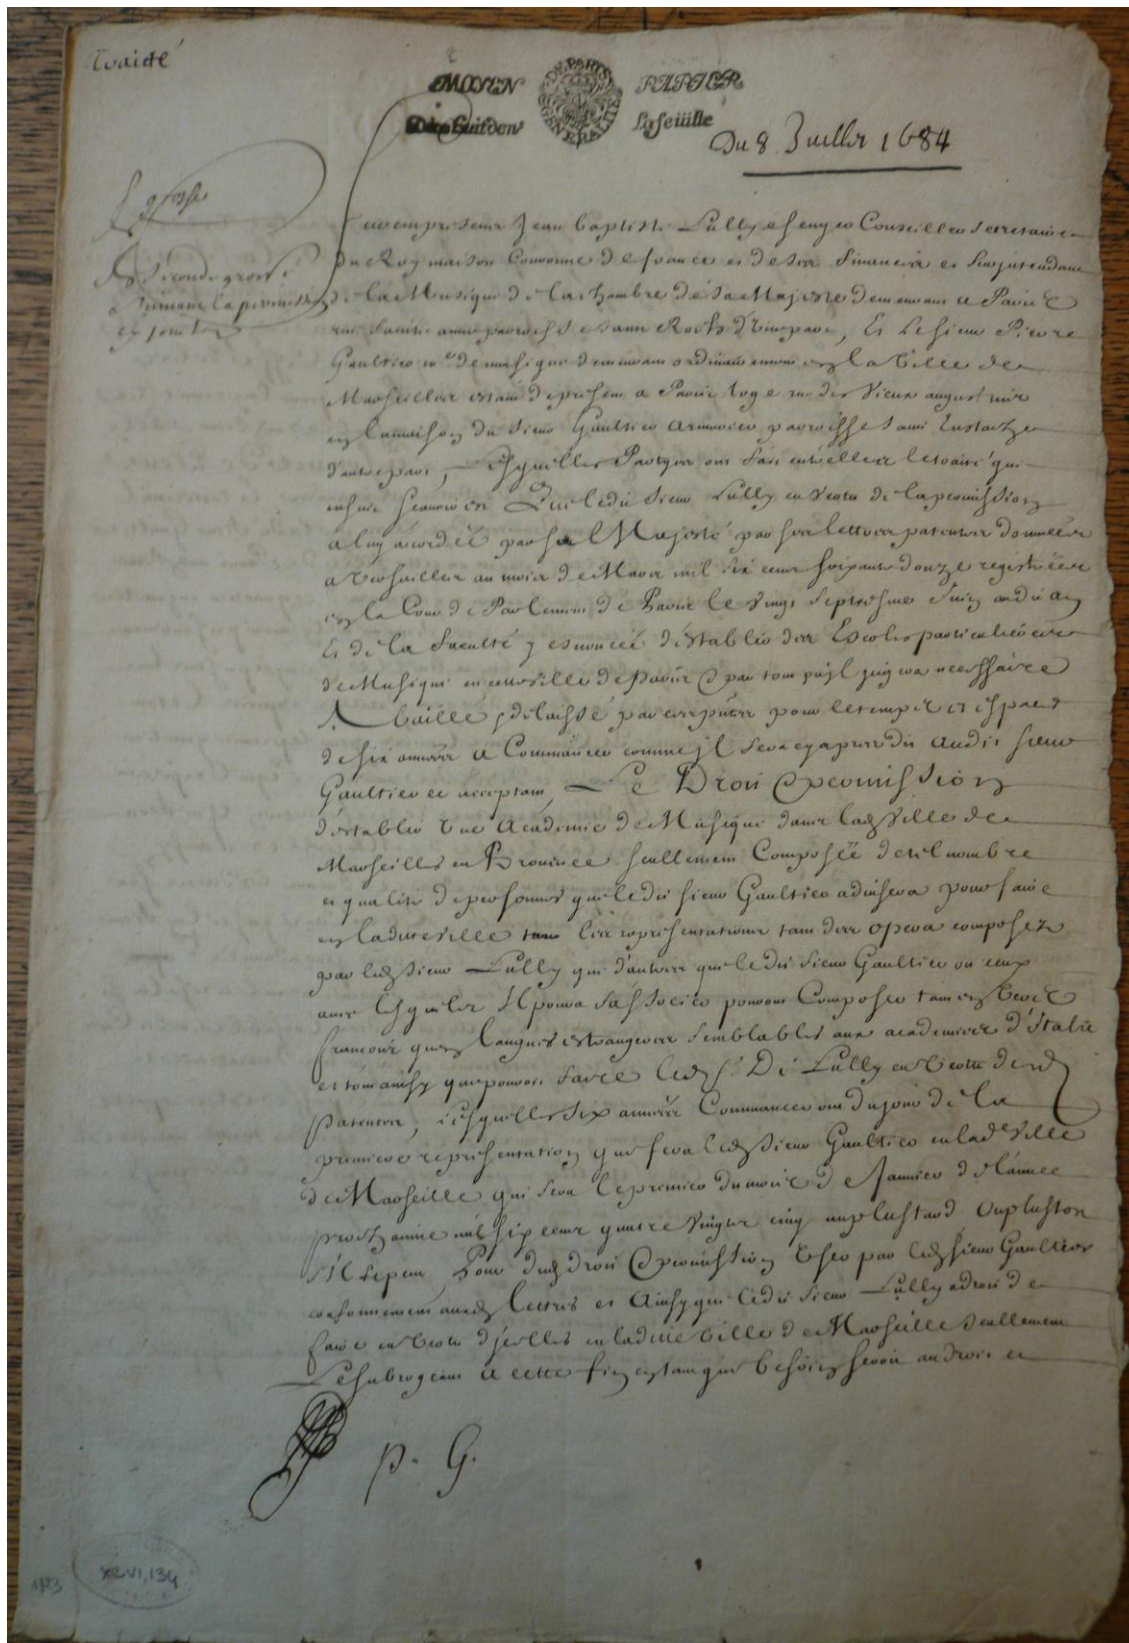 Traicté
MOYEN PAPIER
DE PARIS
GENERALITE
La feüille
Du 8 Juillet 1684
grosse
Seconde grosse
Furent presens Jean Baptiste Lully escuyer Conseiller secretaire
du Roy maison Couronne de france et de ses finances et surjntendant
de la Musique de la chambre de Sa Majesté demeurant a Paris
rue Sainte anne parroisse Saint Roch d'Une part, Et le sieur Pierre
Gaultier Me de musique demeurant ordinairement en la Ville de
Marseilles estant de present a Paris logé rue des Vieux augustins
en la maison du sieur Gaultier parroisse Saint Eustache
d'autre part, Lesquelles Partyes ont fait entr'elles le traité qui
ensuit Scavoir est Que ledit sieur Lully en Vertu de la permission
a luy accordée par Sa Majesté par ses lettres patentes données
a Versailles au mois de Mars mil six cens soixante douze registrées
en la Cour de Parlement de Paris le Vingt Septiesme Juin audit an
Et de la faculté y enoncée d'establir des Escoles particulieres
de Musique en cette Ville de Paris & par tout ou jl jugera necessaire
A baillé & delaissé par ces presentes pour le temps et espace
de six années a Commancer comme jl sera cy apres dit audit sieur
Gaultier ce acceptant, Le Droit & permission
d'establir Une Academie de Musique dans lade Ville de
Marseilles en Provence seullement Composée de tel nombre
et qualité de personnes que ledit sieur Gaultier advisera pour faire
en ladite Ville les representations tant des opera composez
par ledit sieur Lully que d'autres que ledit sieur Gaultier ou ceux
avec lesquels Il pourra s'associer pourront Composer tant en Vers
francois qu'en langues estrangeres semblables aux academies d'Italie
et tout ainsy que pouvoit faire led. Sr. De Lully en Vertu desd.
Patentes, Lesquelles six années Commanceront du jour de la
premiere representation que fera ledit sieur Gaultier en lade Ville
de Marseille qui sera le premier du mois de Janvier de l'année
prochaine mil six cens quatre Vingts cinq au plus tard Ou plustost
s'il se peut, Pour dudit droit & permission User par ledit sieur Gaultier
conformement ausd. lettres et Ainsy que ledit sieur Lully a droit de
faire en Vertu d'jcelles en ladite Ville de Marseille seullement
Le subrogeant a cette fin en tant que besoin seroit au droit et
P. G.
XLVI, 134